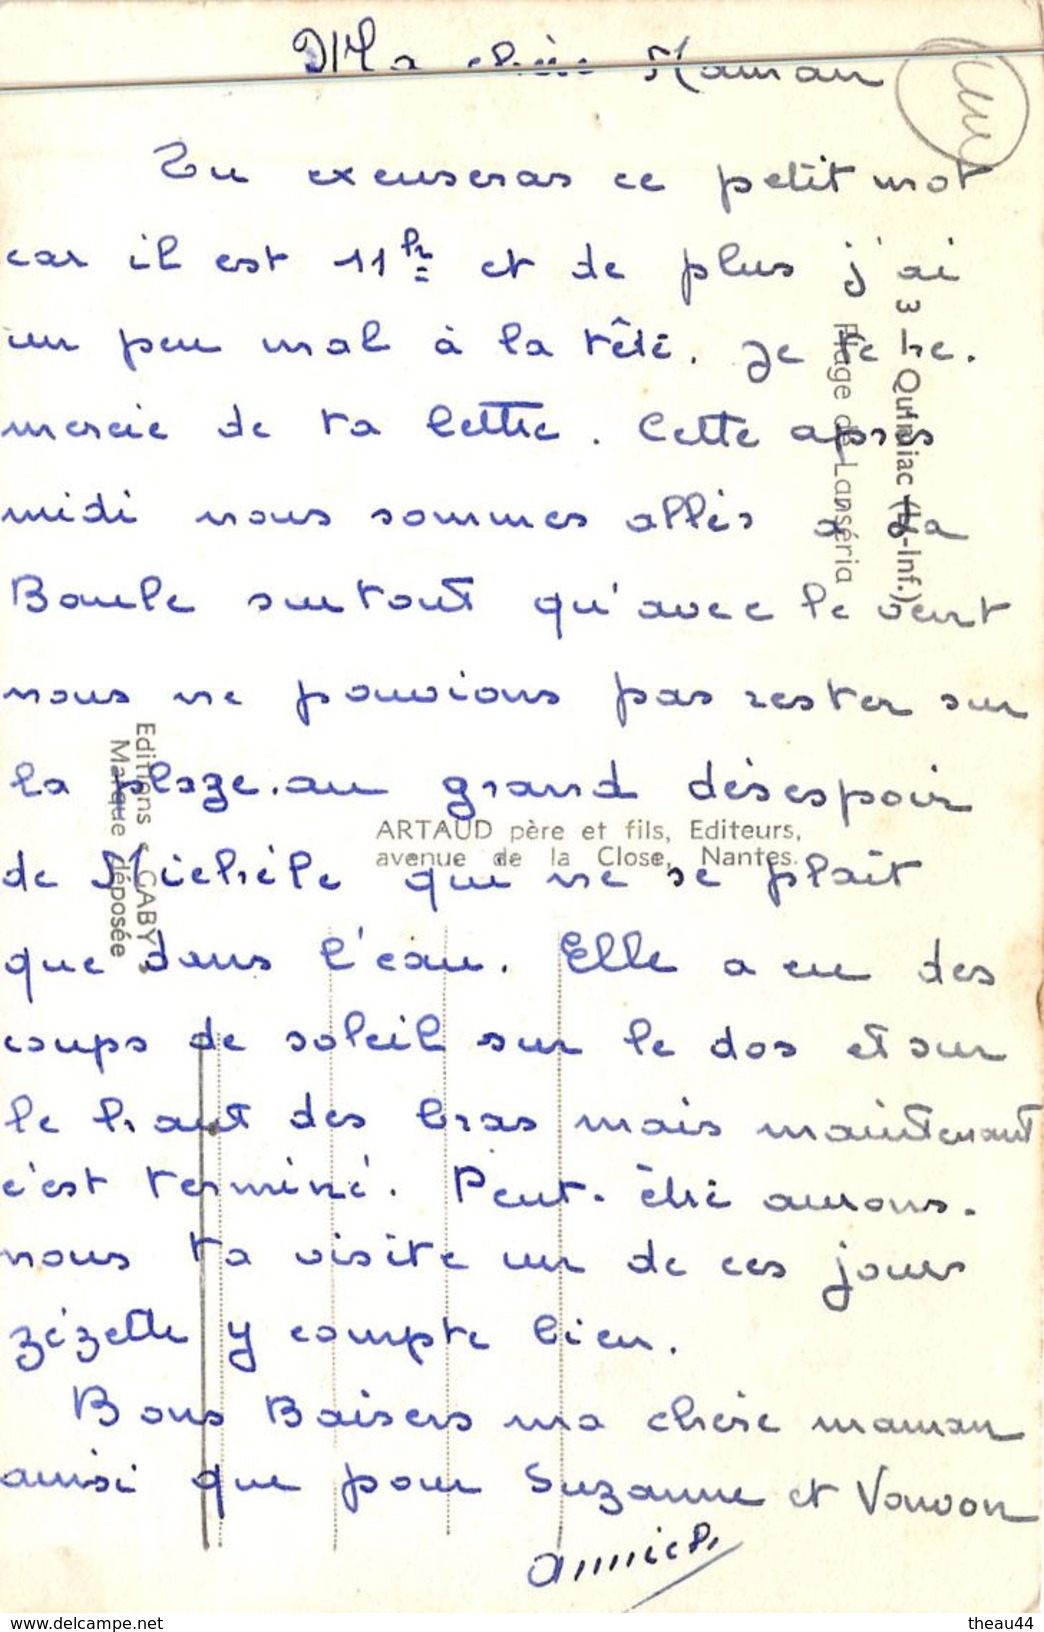 Ma chère Maman
Tu excuseras ce petit mot
car il est 11h et de plus j'ai
un peu mal à la tête. Je te re.
mercie de ta lettre. Cette après
midi nous sommes allés à La
Baule surtout qu'avec le vent
nous ne pouvions pas rester sur
la plage. au grand désespoir
de Michèle qui ne se plait
que dans l'eau. Elle a eu des
coups de soleil sur le dos et sur
le haut des bras mais maintenant
c'est terminé. Peut-être aurons-
nous ta visite un de ces jours
zézette y compte bien.
Bons Baisers ma chère maman
ainsi que pour Suzanne et Vonvon
annick
3 — Quimiac (L.-Inf.)
Plage de Lanséria
Editions « GABY »
Marque déposée
ARTAUD père et fils, Editeurs,
avenue de la Close, Nantes.
www.delcampe.net
theau44